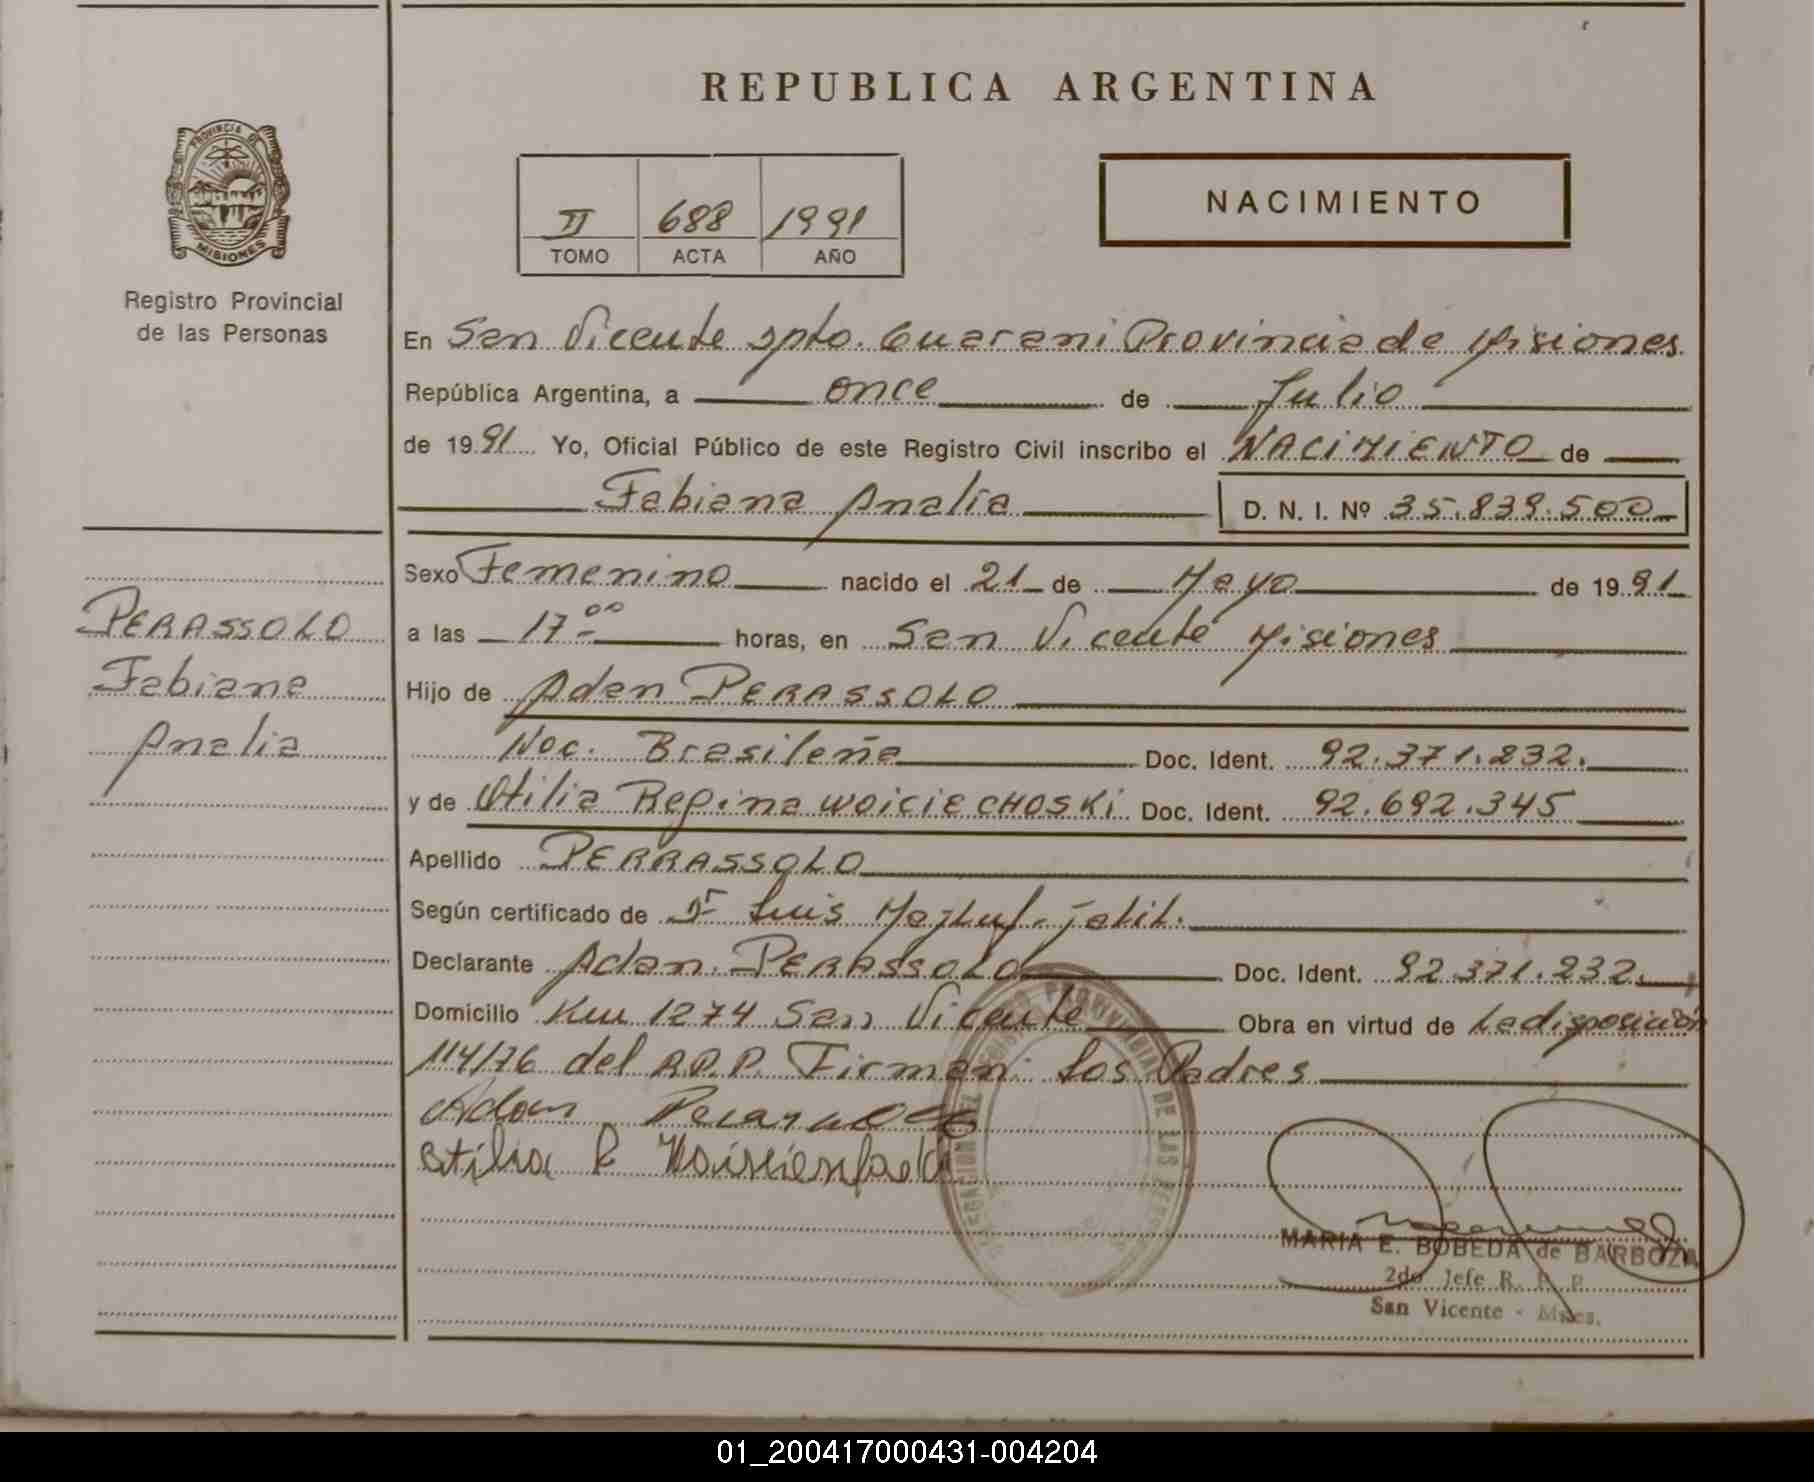 REPUBLICA ARGENTINA
PROVINCIA DE
MISIONES
Registro Provincial
de las Personas
II 688 1991
TOMO ACTA AÑO
NACIMIENTO
En San Vicente Dpto. Guarani Provincia de Misiones
República Argentina, a once de Julio
de 1991 Yo, Oficial Público de este Registro Civil inscribo el NACIMIENTO de
Fabiana Analia D. N. I. Nº 35.839.500
Sexo Femenino nacido el 21 de Mayo de 1991
a las 17 00 horas, en San Vicente Misiones
Hijo de Adan PERASSOLO
Nac. Brasileña Doc. Ident. 92.371.232.
y de Otilia Regina WOICIECHOSKI Doc. Ident. 92.692.345
Apellido PERRASSOLO
Según certificado de Dr Luis
Declarante Adan PERASSOLO Doc. Ident. 92.371.232.
Domicilio Km 1274 San Vicente Obra en virtud de La disposición
114/76 del R.P.P. Firman: Los Padres
Adan
Otilia R
PERASSOLO
Fabiana
Analia
MARIA E. BOBEDA de BARBOZA
2do Jefe R. P. P.
San Vicente - Mnes.
01_200417000431-004204